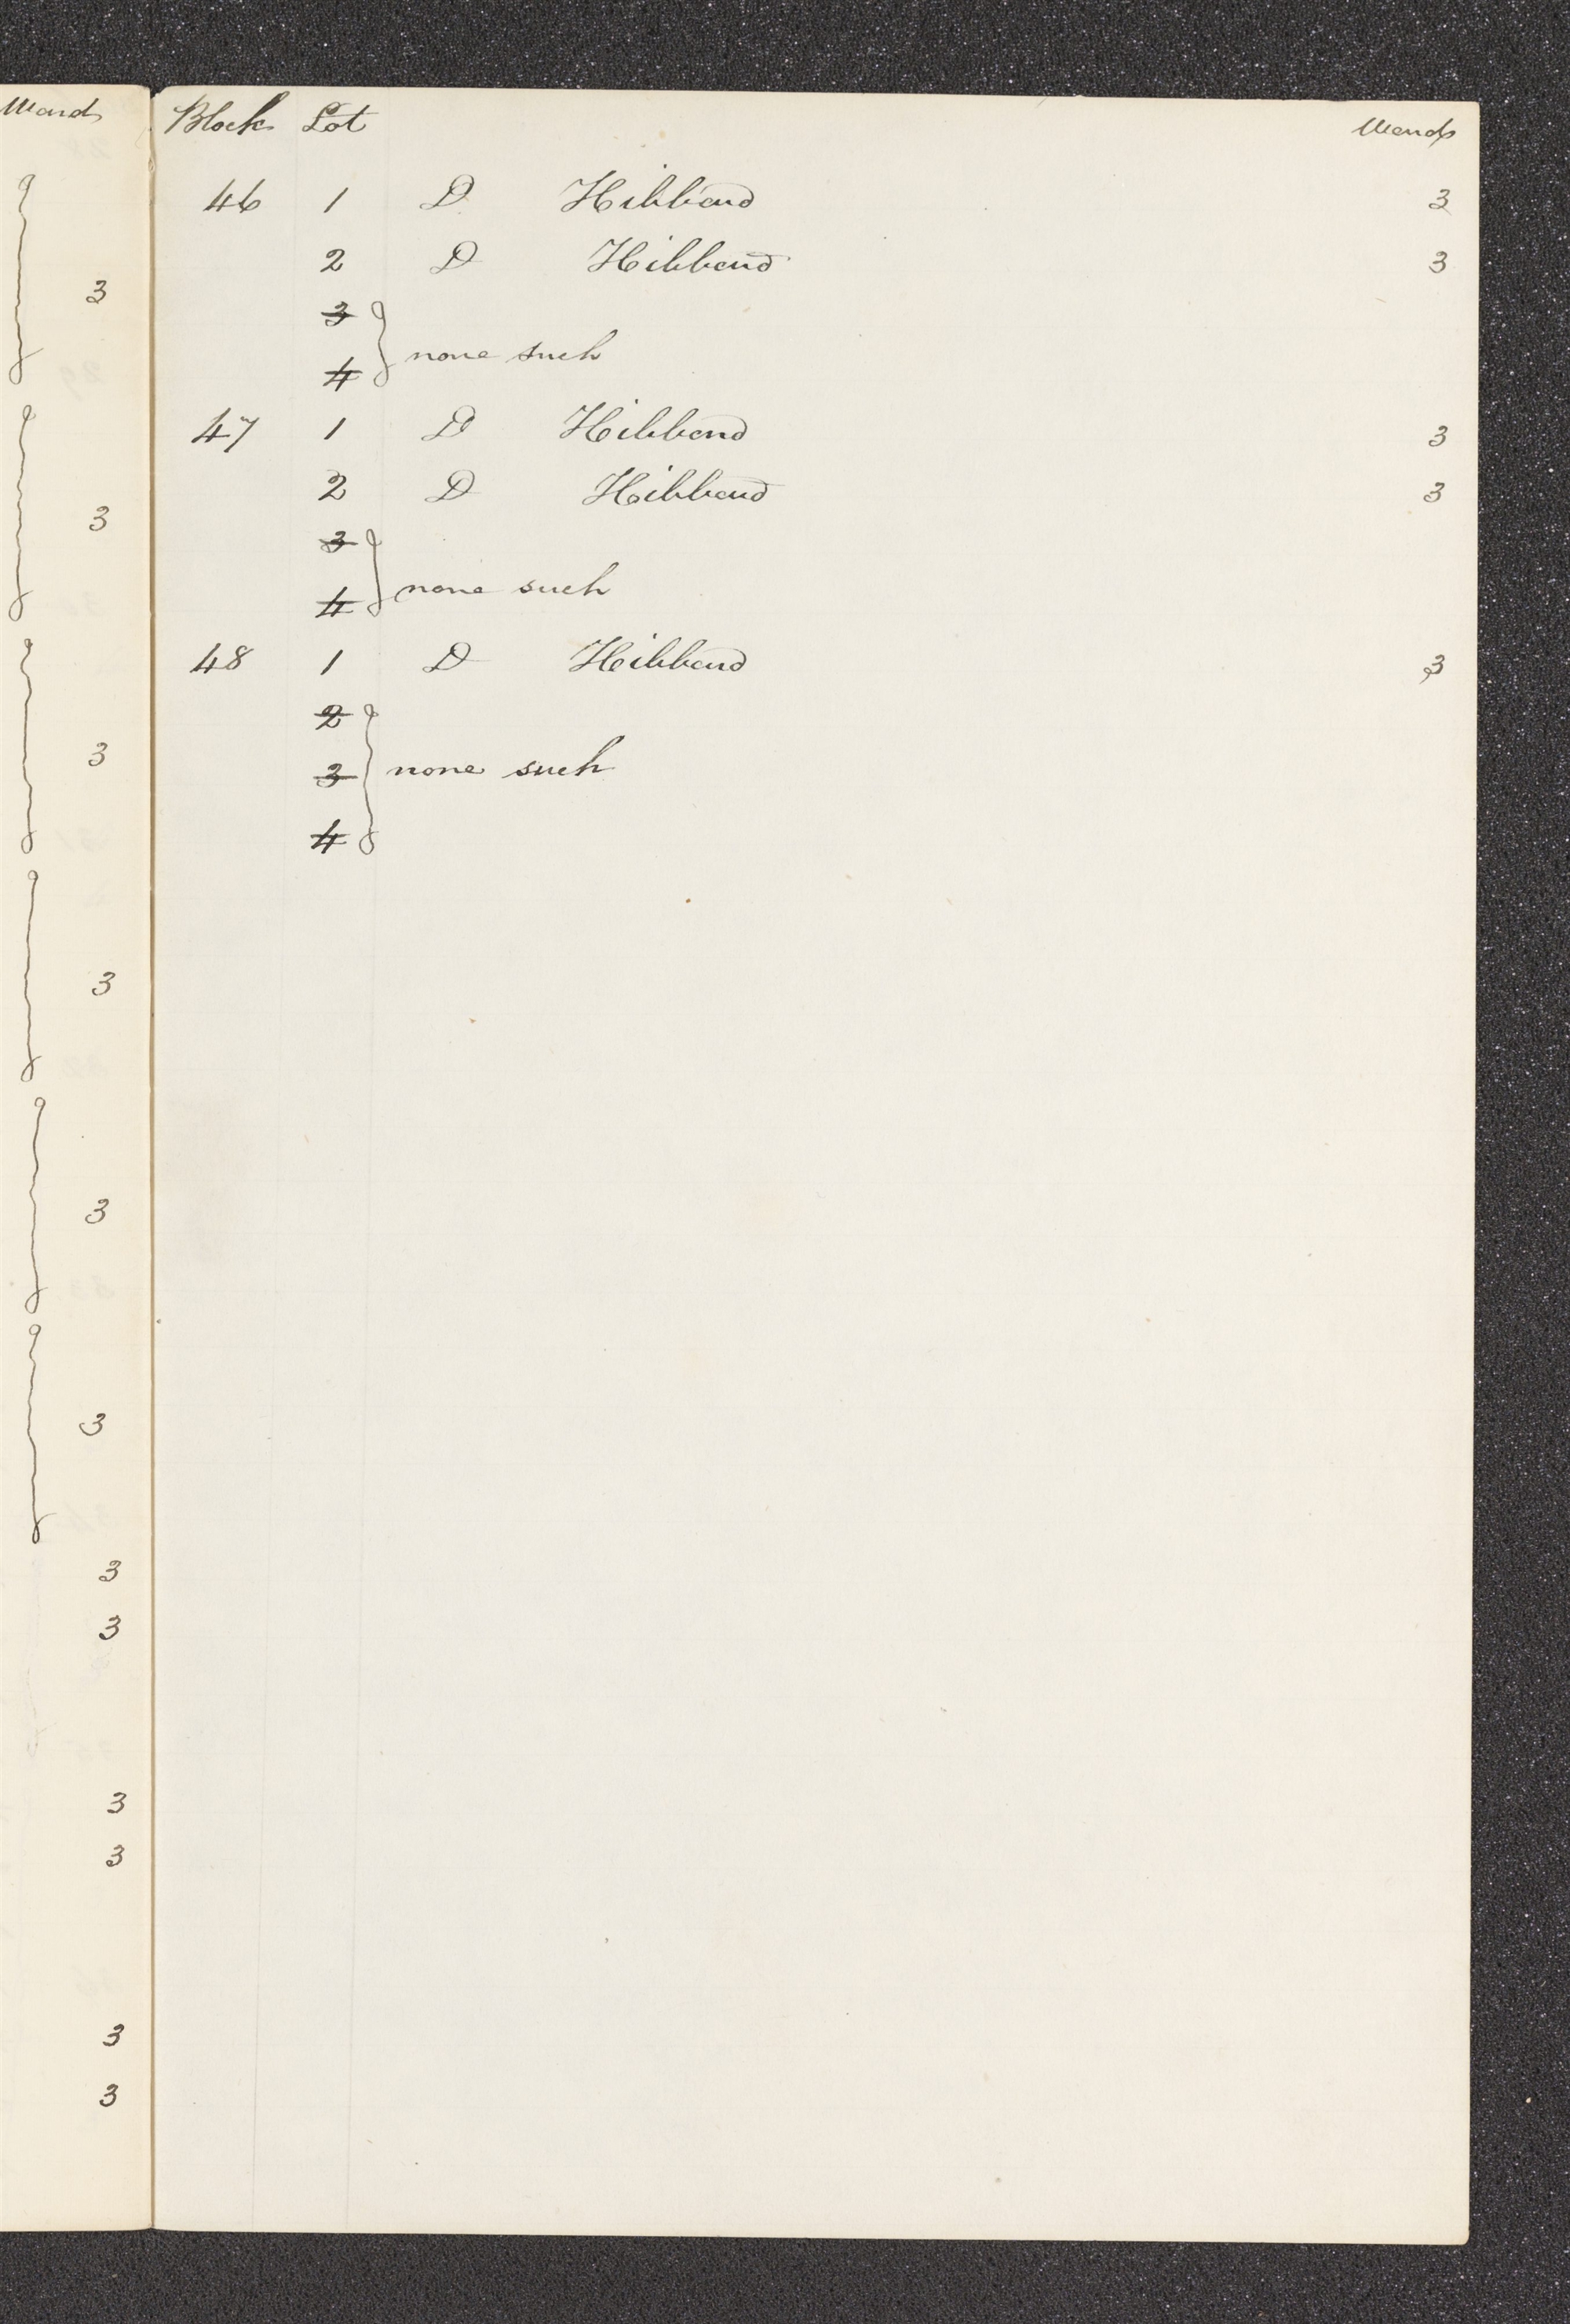 Ward
3
3
3
3
3
3
3
3
3
3
3
3
Block Lot Ward
46 1 D Hibbard 3
2 D Hibbard 3
3
none such
4
47 1 D Hibbard 3
2 D Hibbard 3
3
none such
4
48 1 D Hibbard 3
2
3 none such
4